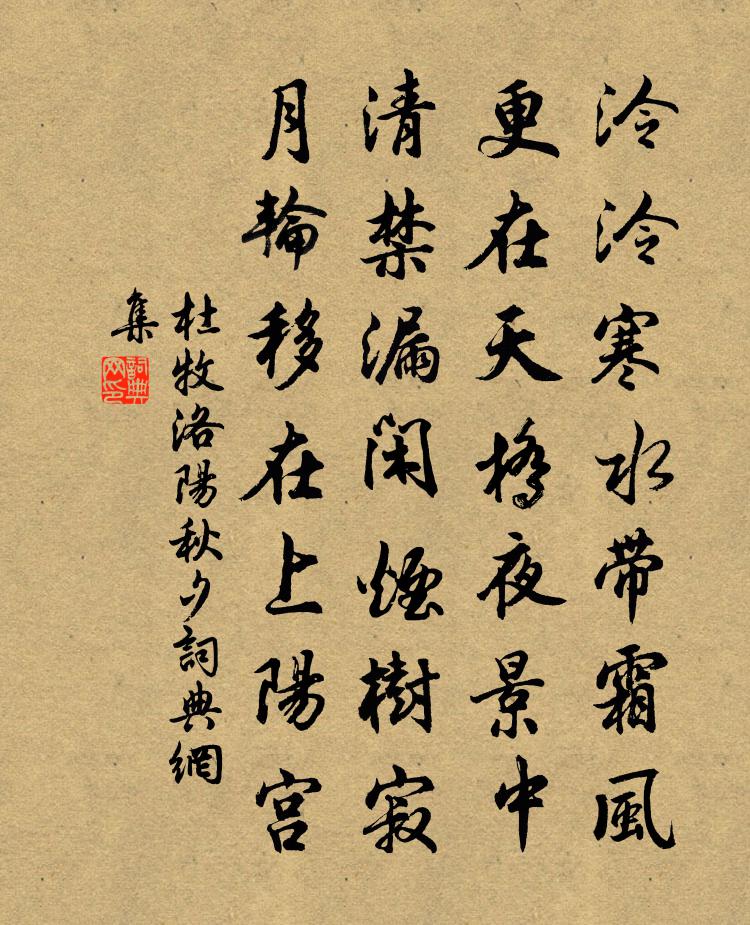 泠泠寒水带霜風
更在天橋夜景中
清禁漏闲煙樹寂
月輪移在上陽宫
杜牧洛陽秋夕詞典網
集
詞典
网印